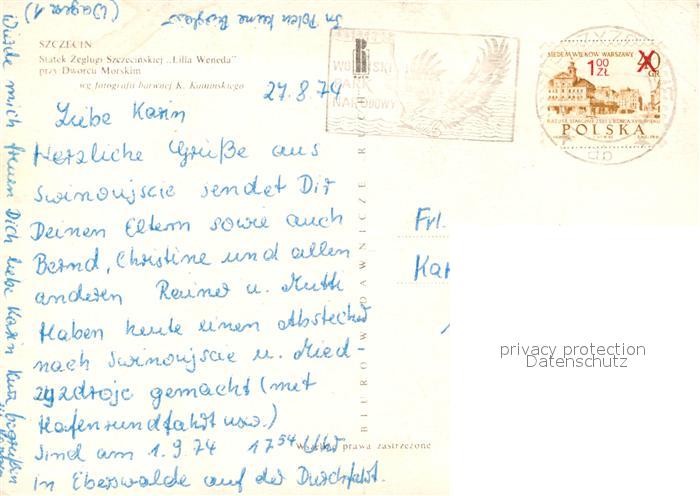 SZCZECIN
Statek Żeglugi Szczecińskiej „Lilla Weneda”
przy Dworcu Morskim
wg fotografii barwnej K. Kamińskiego
27.8.74
Liebe Karin
Herzliche Grüße aus
Swinoujscie sendet Dir
Deinen Eltern sowie auch
Bernd, Christine und allen
anderen Reiner u. Mutti
Haben heute einen Abstecher
nach Swinoujscie u. Mied-
zyzdroje gemacht (mit
Hafenrundfahrt usw.)
Sind am 1.9.74 17⁵⁴ Uhr
in Eberswalde auf der Durchfahrt.
Würde mich freuen Dich liebe Karin kurz begrüßen
(Wagen 1)
In Polen keine
BIURO WYDAWNICZE RUCH
Wszelkie prawa zastrzeżone
WOLIŃSKI
PARK
NARODOWY
SIEDEM WIEKÓW WARSZAWY
40 GR
1,00
ZŁ
POLSKA
Frl.
Kar
privacy protection
Datenschutz